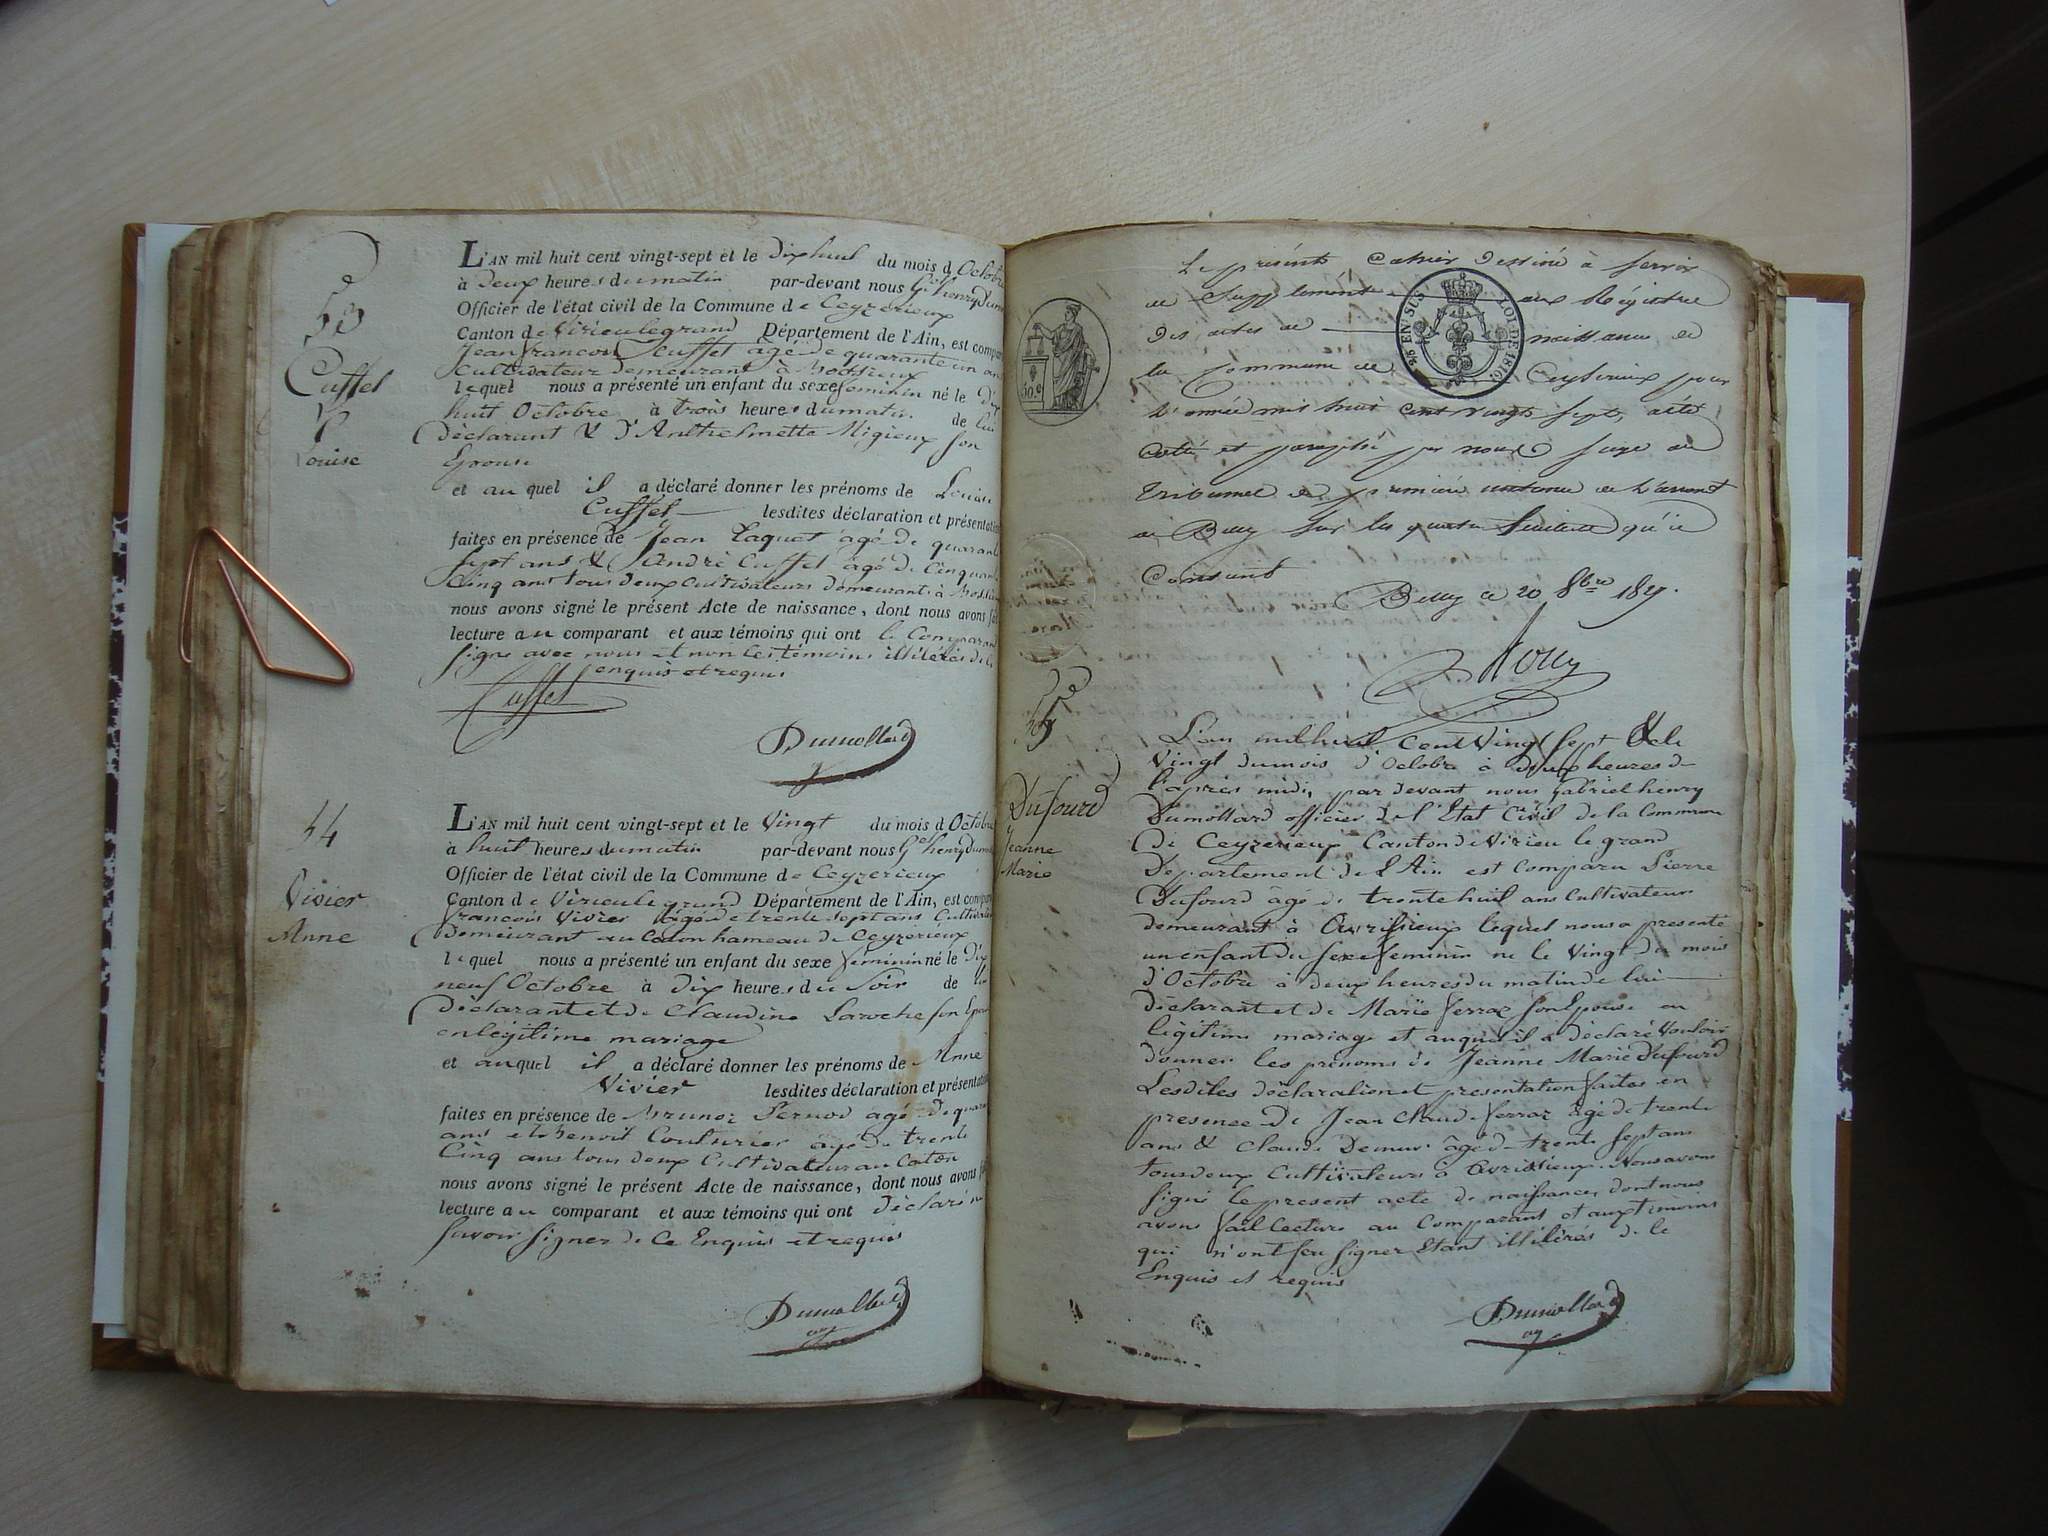 53e
Cuffet
Louise
L'AN mil huit cent vingt-sept et le dix huit du mois d'Octobre
à deux heures du matin par-devant nous Gel henry Dum
Officier de l'état civil de la Commune de Ceyzerieux
Canton de Virieulegrand Département de l'Ain, est compa
Jean francois Cuffet âgé de quarante un an
Cultivateur demeurant à
lequel nous a présenté un enfant du sexe feminin né le dix
huit Octobre à trois heures du matin de lui
Déclarant & D'Anthelmette Migieux son
Epouse
et au quel il a déclaré donner les prénoms de Louise
Cuffet lesdites déclaration et présentation
faites en présence de Jean Laquet agé de quarante
sept ans & André Cuffet agé de Cinquante
Cinq ans tous deux Cultivateurs demeurant à
nous avons signé le présent Acte de naissance, dont nous avons fa
lecture au comparant et aux témoins qui ont le Comparant
signé avec nous et non les témoins illitérés de ce
enquis et requis
Cuffet
Dumollard
44
Vivier
Anne
L'AN mil huit cent vingt-sept et le Vingt du mois d'Octobre
à huit heures du matin par-devant nous Gel henry Dum
Officier de l'état civil de la Commune de Ceyzerieux
Canton de Virieulegrand Département de l'Ain, est compa
francois Vivier âgé de trente sept ans Cultivateur
Demeurant au Caton hameau de Ceyzerieux
lequel nous a présenté un enfant du sexe feminin né le Dix
neuf Octobre à Dix heures du Soir de lui
Déclarant et de Claudine Laroche son Epouse
en légitime mariage
et auquel il a déclaré donner les prénoms de Anne
Vivier lesdites déclaration et présentation
faites en présence de Pernod agé de quarante
ans et Benoit Couturier âgé de trente
Cinq ans tous deux Cultivateur au Caton
nous avons signé le présent Acte de naissance, dont nous avons f
lecture au comparant et aux témoins qui ont Déclaré ne
Savoir Signer de Ce Enquis et requis
Dumollard
Le présent Cahier Destiné à servir
de Supplément aux Régistre
Des actes de naissance de
la Commune de Ceyzerieux pour
L'année mil huit Cent vingt sept, a été
Coté et paraphé par nous juge au
Tribunal de premiere instance de l'arrondt
de Belley Sur les quatre feuillets qu'il
Contient
Belley ce 20 8bre 1827.
30.c
25 EN SUS. LOI DE 1816.
45e
Dufourd
Jeanne
Marie
L'an mil huit Cent Vingt Sept & le
Vingt du mois d'Octobre à deux heures de
l'après midi, par devant nous Gabriel henry
Dumollard officier de l'Etat Civil de la Commune
De Ceyzerieux Canton de Virieu le grand
Departement de l'Ain est Comparu Pierre
Dufourd âgé de trente huit ans Cultivateur
demeurant à Avrissieux lequel nous a presenté
un enfant du sexe feminin né le Vingt du mois
d'Octobre à deux heures du matin de lui
Déclarant et de Marie ferraz son Epouse en
légitime mariage et auquel il a déclaré Vouloir
donner les prenoms de Jeanne Marie Dufourd
Lesdites déclaration et presentation faites en
presence de Jean Claude ferraz âgé de trente
ans & Claude Demeur âgé de trente sept ans
tous deux Cultivateurs à Avrissieux. Nous avons
signé le present acte de naissance, dont nous
avons fait Lecture au Comparant et aux témoins
qui n'ont seu signer Etant illitérés de ce
Enquis et requis
Dumollard